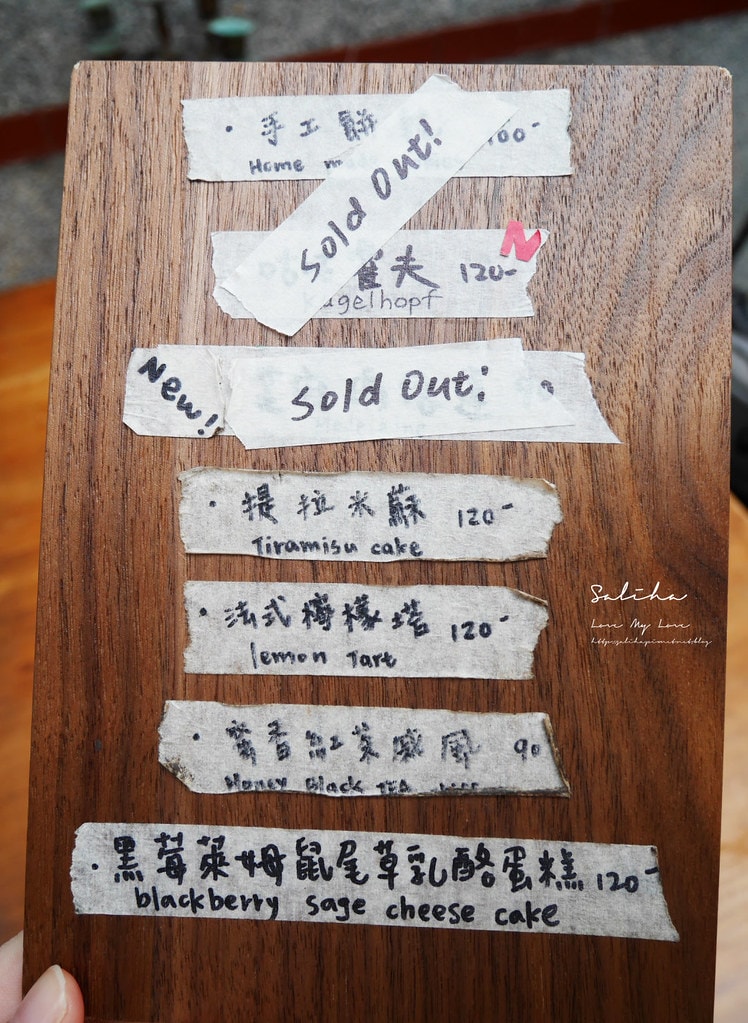 · 手工餅
Home
100-
Sold Out!
N
霍夫 120-
Kugelhopf
New!
Sold Out!
· 提拉米蘇 120-
Tiramisu cake
· 法式檸檬塔 120-
lemon Tart
· 蜜香紅茶戚風 90
Honey Black TEA
· 黑莓萊姆鼠尾草乳酪蛋糕 120-
blackberry sage cheese cake
Saliha
Love My Love